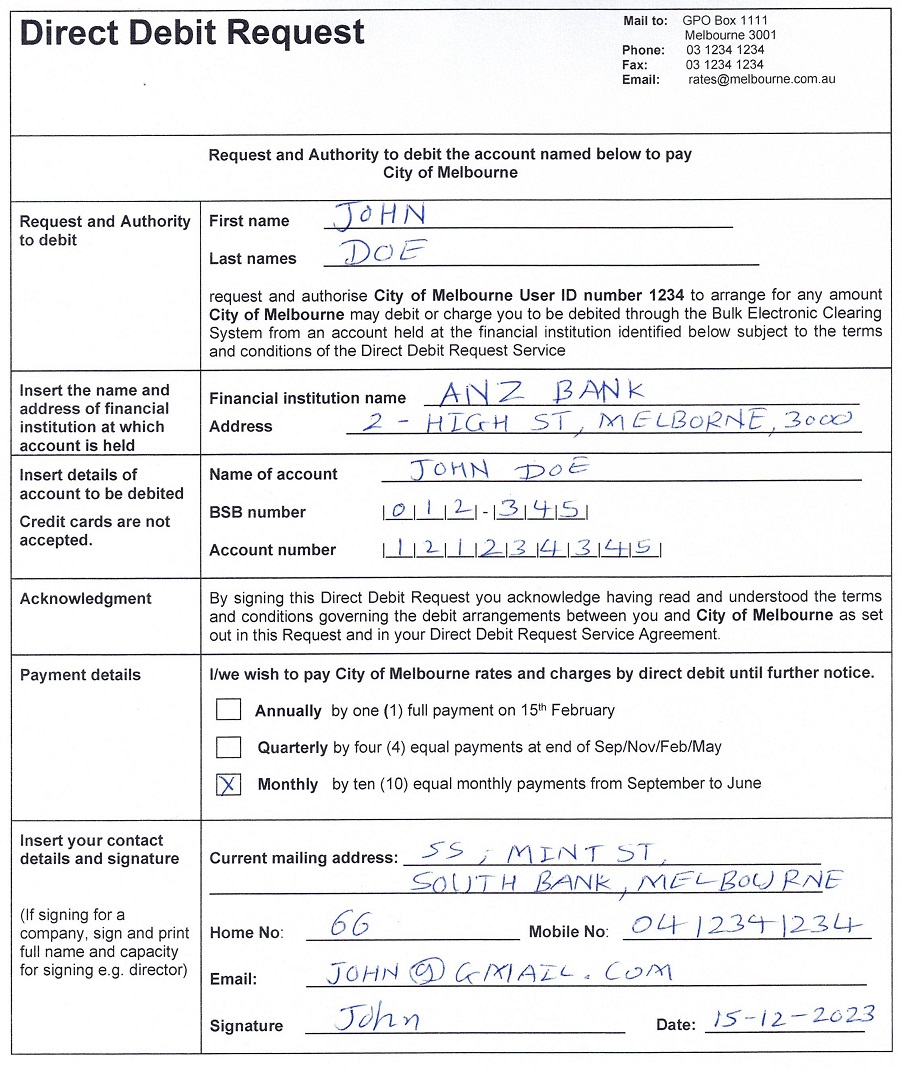 Direct Debit Request
Mail to: GPO Box 1111
Melbourne 3001
Phone: 03 1234 1234
Fax: 03 1234 1234
Email: rates@melbourne.com.au
Request and Authority to debit the account named below to pay
City of Melbourne
Request and Authority
to debit
First name JOHN
Last names DOE
request and authorise City of Melbourne User ID number 1234 to arrange for any amount
City of Melbourne may debit or charge you to be debited through the Bulk Electronic Clearing
System from an account held at the financial institution identified below subject to the terms
and conditions of the Direct Debit Request Service
Insert the name and
address of financial
institution at which
account is held
Financial institution name ANZ BANK
Address 2 - HIGH ST, MELBORNE, 3000
Insert details of
account to be debited
Credit cards are not
accepted.
Name of account JOHN DOE
BSB number 012-345
Account number 121234345
Acknowledgment
By signing this Direct Debit Request you acknowledge having read and understood the terms
and conditions governing the debit arrangements between you and City of Melbourne as set
out in this Request and in your Direct Debit Request Service Agreement.
Payment details
I/we wish to pay City of Melbourne rates and charges by direct debit until further notice.
Annually by one (1) full payment on 15th February
Quarterly by four (4) equal payments at end of Sep/Nov/Feb/May
X Monthly by ten (10) equal monthly payments from September to June
Insert your contact
details and signature
(If signing for a
company, sign and print
full name and capacity
for signing e.g. director)
Current mailing address: 55, MINT ST,
SOUTH BANK, MELBOURNE
Home No: 66
Mobile No: 0412341234
Email: JOHN@GMAIL.COM
Signature John
Date: 15-12-2023